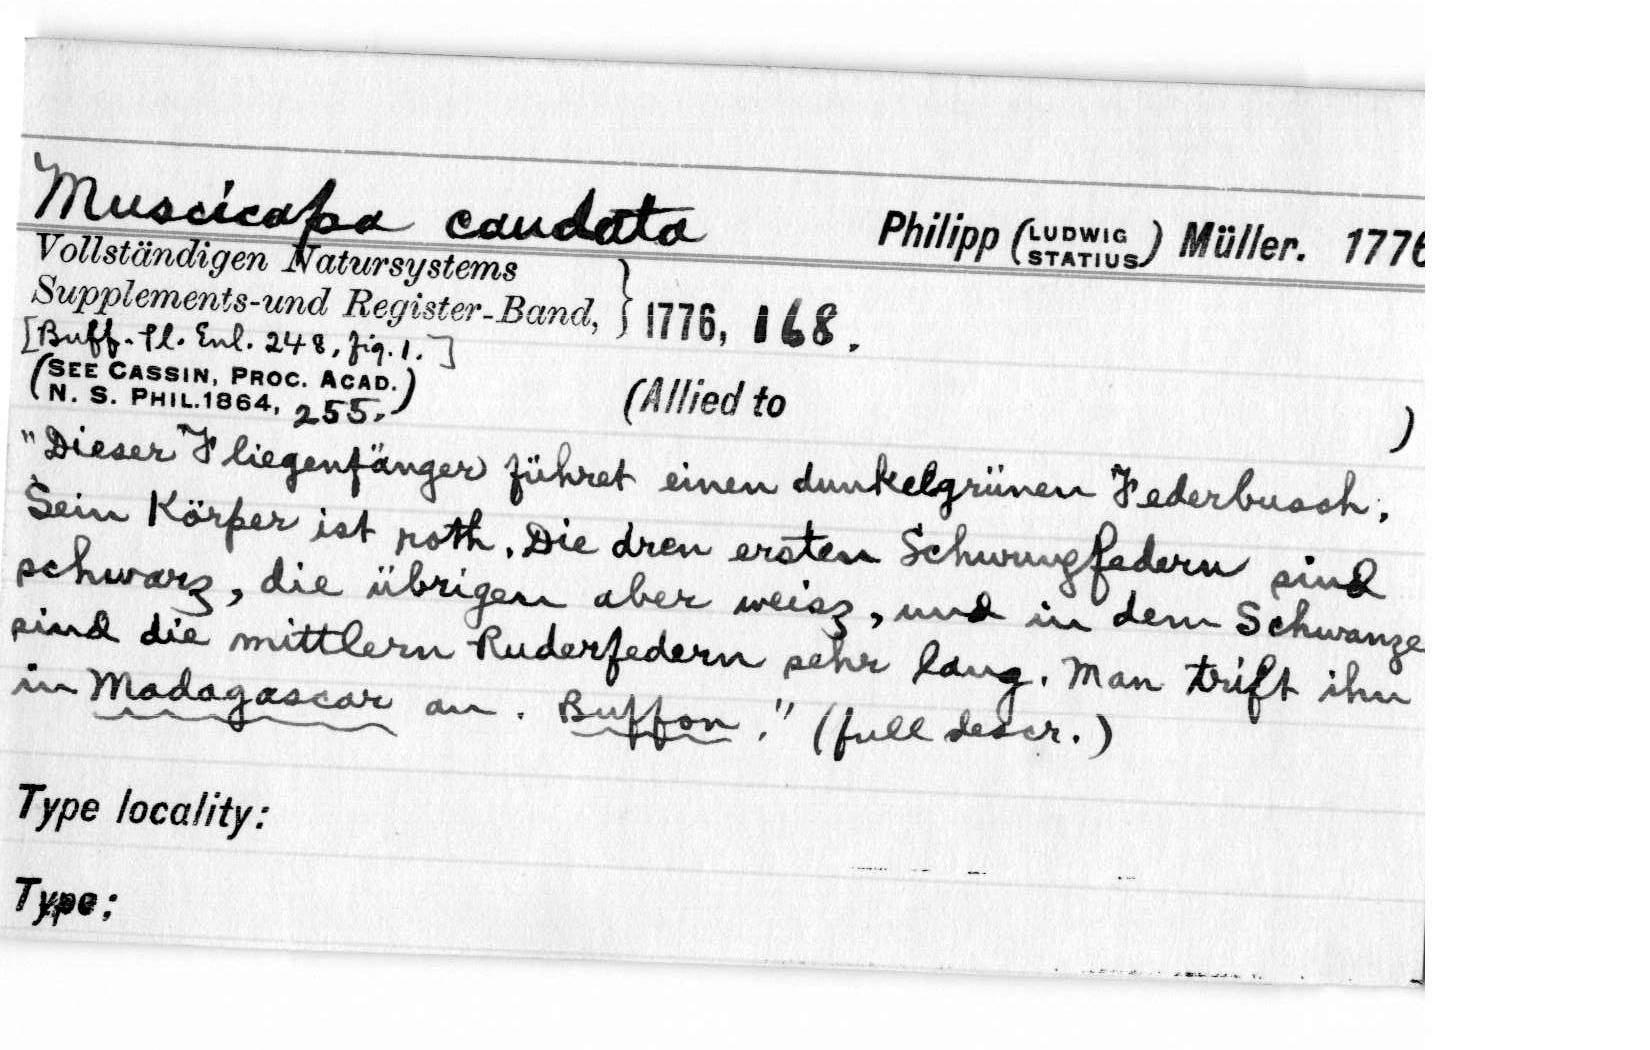 Muscicapa caudata Philipp (LUDWIG STATIUS) Müller. 1776
Vollständigen Natursystems
Supplements-und Register-Band, } 1776, 168.
[Buff. Pl. Enl. 248, fig. 1.]
(SEE CASSIN, PROC. ACAD.
N. S. PHIL. 1864, 255.)
(Allied to )
"Dieser Fliegenfänger führet einen dunkelgrünen Federbusch.
Sein Körper ist roth. Die dren ersten Schwungfedern sind
schwarz, die übrigen aber weisz, und in dem Schwanze
sind die mittlern Ruderfedern sehr lang. Man trift ihn
in Madagascar an. Buffon." (full descr.)
Type locality:
Type: